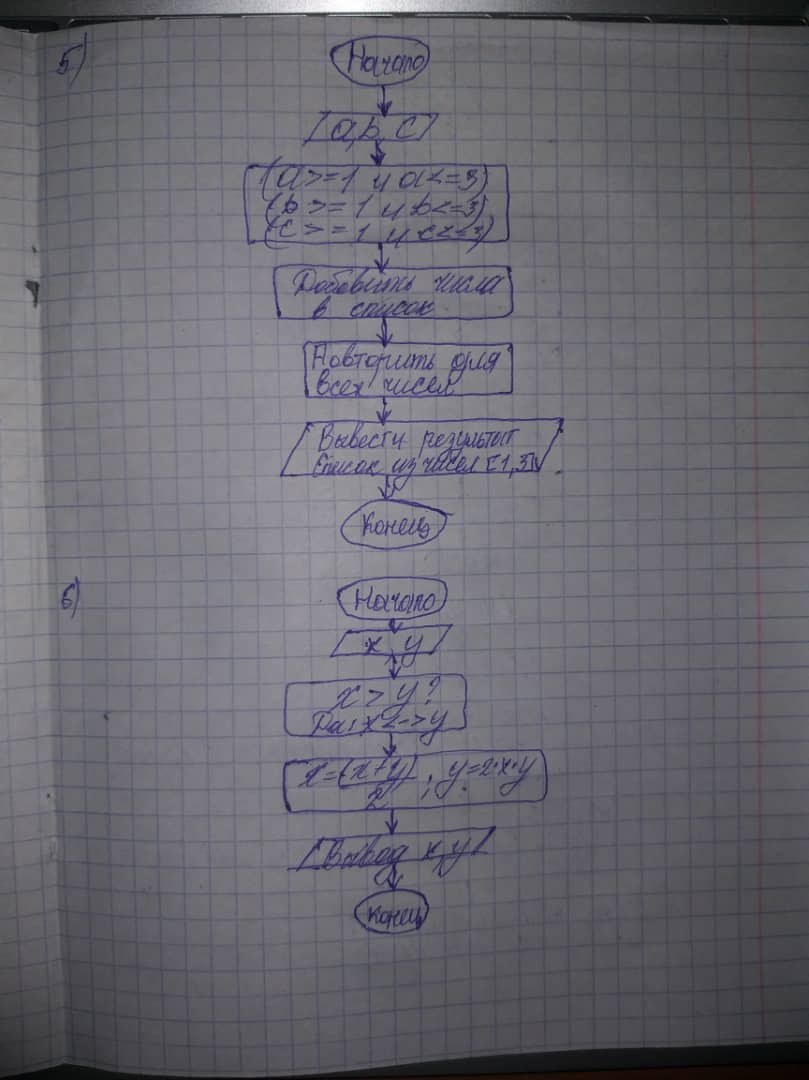 5)
Начало
a, b, c
(a>=1 и a<=3)
(b>=1 и b<=3)
(c>=1 и c<=3)
Добавить числа
в список
Повторить для
всех чисел
Вывести результат
Список из чисел [1,3]
Конец
6)
Начало
x, y
x > y?
Да: x<->y
x=(x+y)/2; y=2·x·y
Вывод x, y
Конец